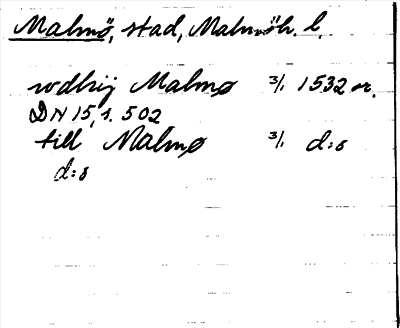 Malmö, stad, Malmöh. l.
wdhij Malmø 3/1 1532 or.
DN 15, s. 502
till Malmø 3/1 d:o
d:o